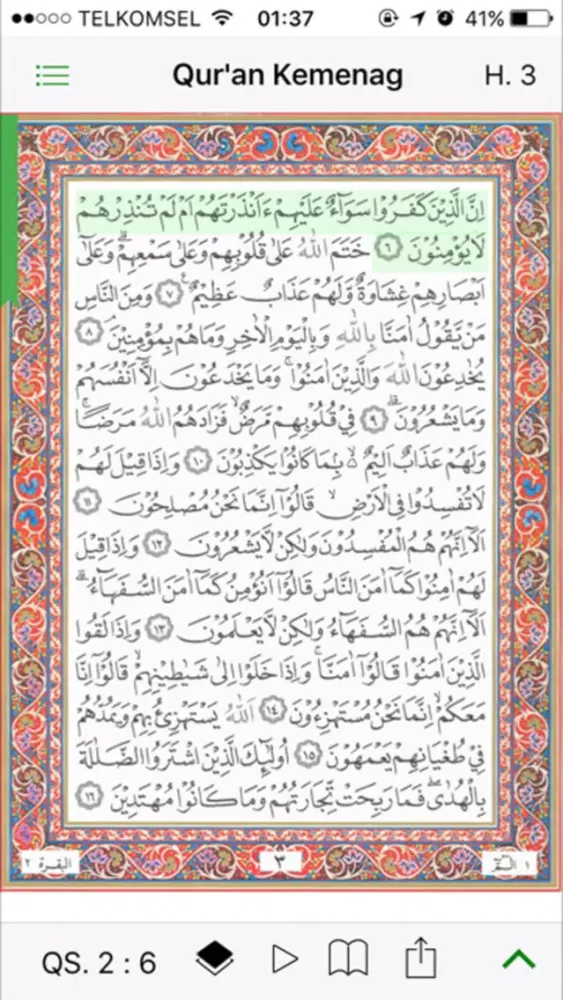 TELKOMSEL 01:37 41%
Qur'an Kemenag H. 3
اِنَّ الَّذِيْنَ كَفَرُوْا سَوَاۤءٌ عَلَيْهِمْ ءَاَنْذَرْتَهُمْ اَمْ لَمْ تُنْذِرْهُمْ
لَا يُؤْمِنُوْنَ ٦ خَتَمَ اللّٰهُ عَلٰى قُلُوْبِهِمْ وَعَلٰى سَمْعِهِمْۗ وَعَلٰٓى
اَبْصَارِهِمْ غِشَاوَةٌ وَّلَهُمْ عَذَابٌ عَظِيْمٌ ࣖ ٧ وَمِنَ النَّاسِ
مَنْ يَّقُوْلُ اٰمَنَّا بِاللّٰهِ وَبِالْيَوْمِ الْاٰخِرِ وَمَا هُمْ بِمُؤْمِنِيْنَۘ ٨
يُخٰدِعُوْنَ اللّٰهَ وَالَّذِيْنَ اٰمَنُوْاۚ وَمَا يَخْدَعُوْنَ اِلَّآ اَنْفُسَهُمْ
وَمَا يَشْعُرُوْنَۗ ٩ فِيْ قُلُوْبِهِمْ مَّرَضٌۙ فَزَادَهُمُ اللّٰهُ مَرَضًاۚ
وَلَهُمْ عَذَابٌ اَلِيْمٌ ەۙ بِمَا كَانُوْا يَكْذِبُوْنَ ١٠ وَاِذَا قِيْلَ لَهُمْ
لَا تُفْسِدُوْا فِى الْاَرْضِۙ قَالُوْٓا اِنَّمَا نَحْنُ مُصْلِحُوْنَ ١١
اَلَآ اِنَّهُمْ هُمُ الْمُفْسِدُوْنَ وَلٰكِنْ لَّا يَشْعُرُوْنَ ١٢ وَاِذَا قِيْلَ
لَهُمْ اٰمِنُوْا كَمَآ اٰمَنَ النَّاسُ قَالُوْٓا اَنُؤْمِنُ كَمَآ اٰمَنَ السُّفَهَاۤءُۗ
اَلَآ اِنَّهُمْ هُمُ السُّفَهَاۤءُ وَلٰكِنْ لَّا يَعْلَمُوْنَ ١٣ وَاِذَا لَقُوا
الَّذِيْنَ اٰمَنُوْا قَالُوْٓا اٰمَنَّاۚ وَاِذَا خَلَوْا اِلٰى شَيٰطِيْنِهِمْۙ قَالُوْٓا اِنَّا
مَعَكُمْۙ اِنَّمَا نَحْنُ مُسْتَهْزِءُوْنَ ١٤ اَللّٰهُ يَسْتَهْزِئُ بِهِمْ وَيَمُدُّهُمْ
فِيْ طُغْيَانِهِمْ يَعْمَهُوْنَ ١٥ اُولٰۤىِٕكَ الَّذِيْنَ اشْتَرَوُا الضَّلٰلَةَ
بِالْهُدٰىۖ فَمَا رَبِحَتْ تِّجَارَتُهُمْ وَمَا كَانُوْا مُهْتَدِيْنَ ١٦
٣ البقرة ٢
QS. 2 : 6